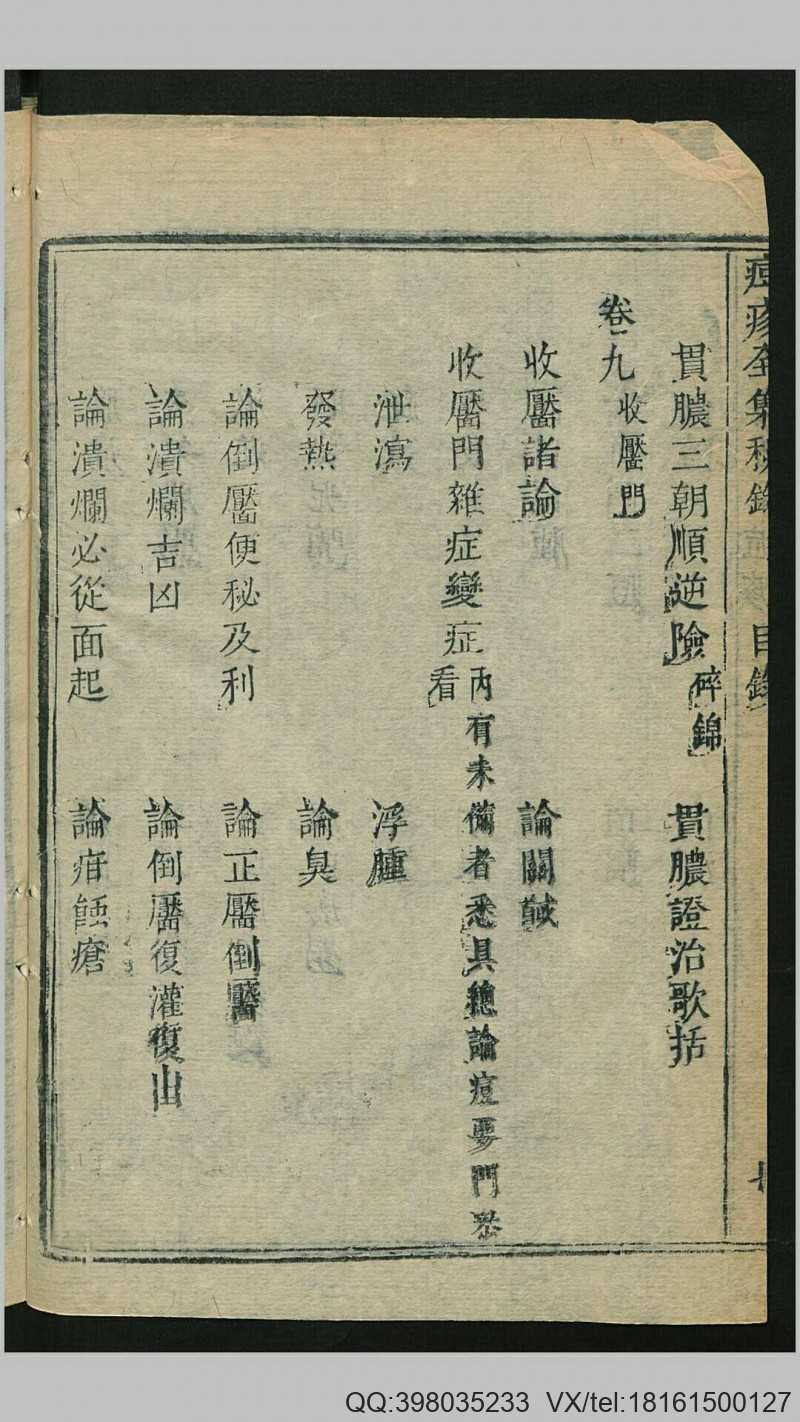 痘疹全集秘錄 目錄
貫膿三朝順逆險碎錦 貫膿證治歌括
卷九收靨門
收靨諸論 論關鍵
收靨門雜症變症內有未備者悉具總論痘要門叅看
泄瀉 浮腫
發熱 論臭
論倒靨便秘及利 論正靨倒靨
論潰爛吉凶 論倒靨復灌復出
論潰爛必從面起 論疳蝕瘡
QQ:398035233 VX/tel:18161500127